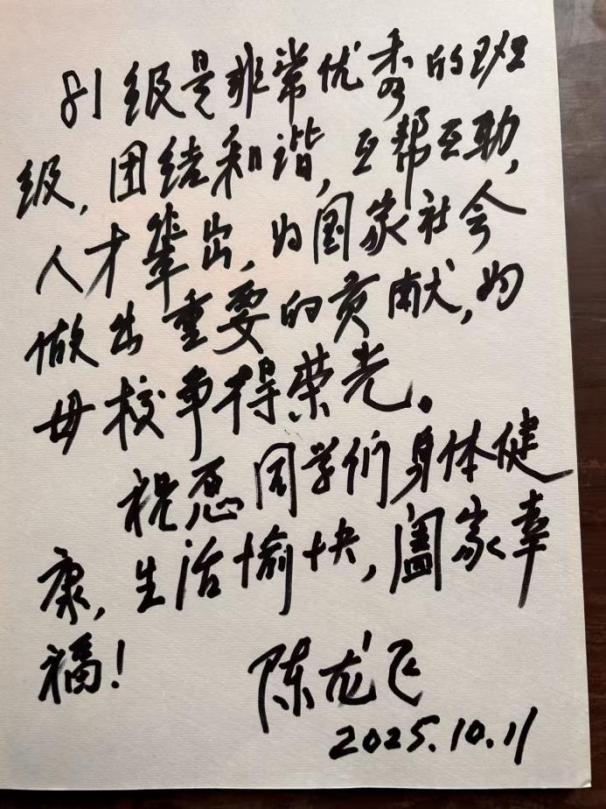 81级是非常优秀的班
级,团结和谐,互帮互助,
人才辈出,为国家社会
做出重要的贡献,为
母校争得荣光。
祝愿同学们身体健
康,生活愉快,阖家幸
福!
陈龙飞
2025.10.11